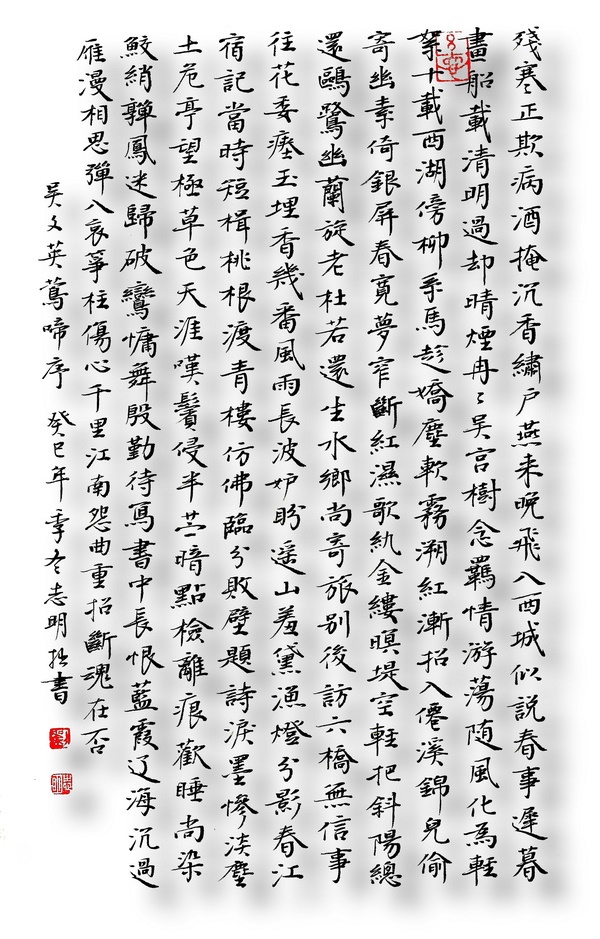 殘寒正欺病酒掩沉香繡户燕来晚飛入西城似説春事遲暮
畫船載清明過却晴煙冉〻吴宫樹念羈情游蕩随風化為輕
絮十載西湖傍柳系馬趁嬌塵軟霧溯紅漸招入僊溪錦兒偷
寄幽素倚銀屏春寬夢窄斷紅濕歌紈金縷暝堤空輕把斜陽總
還鷗鷺幽蘭旋老杜若還生水鄉尚寄旅别後訪六橋無信事
往花委瘞玉埋香幾番風雨長波妒盼遥山羞黛漁燈分影春江
宿記當時短楫桃根渡青樓仿佛臨分敗壁題詩淚墨慘淡塵
土危亭望極草色天涯嘆鬢侵半苎暗點檢離痕歡睡尚染
鮫綃嚲鳳迷歸破鸞慵舞殷勤待寫書中長恨藍霞辽海沉過
雁漫相思彈入哀箏柱傷心千里江南怨曲重招斷魂在否
吴文英鶯啼序 癸巳年季冬志明拙書